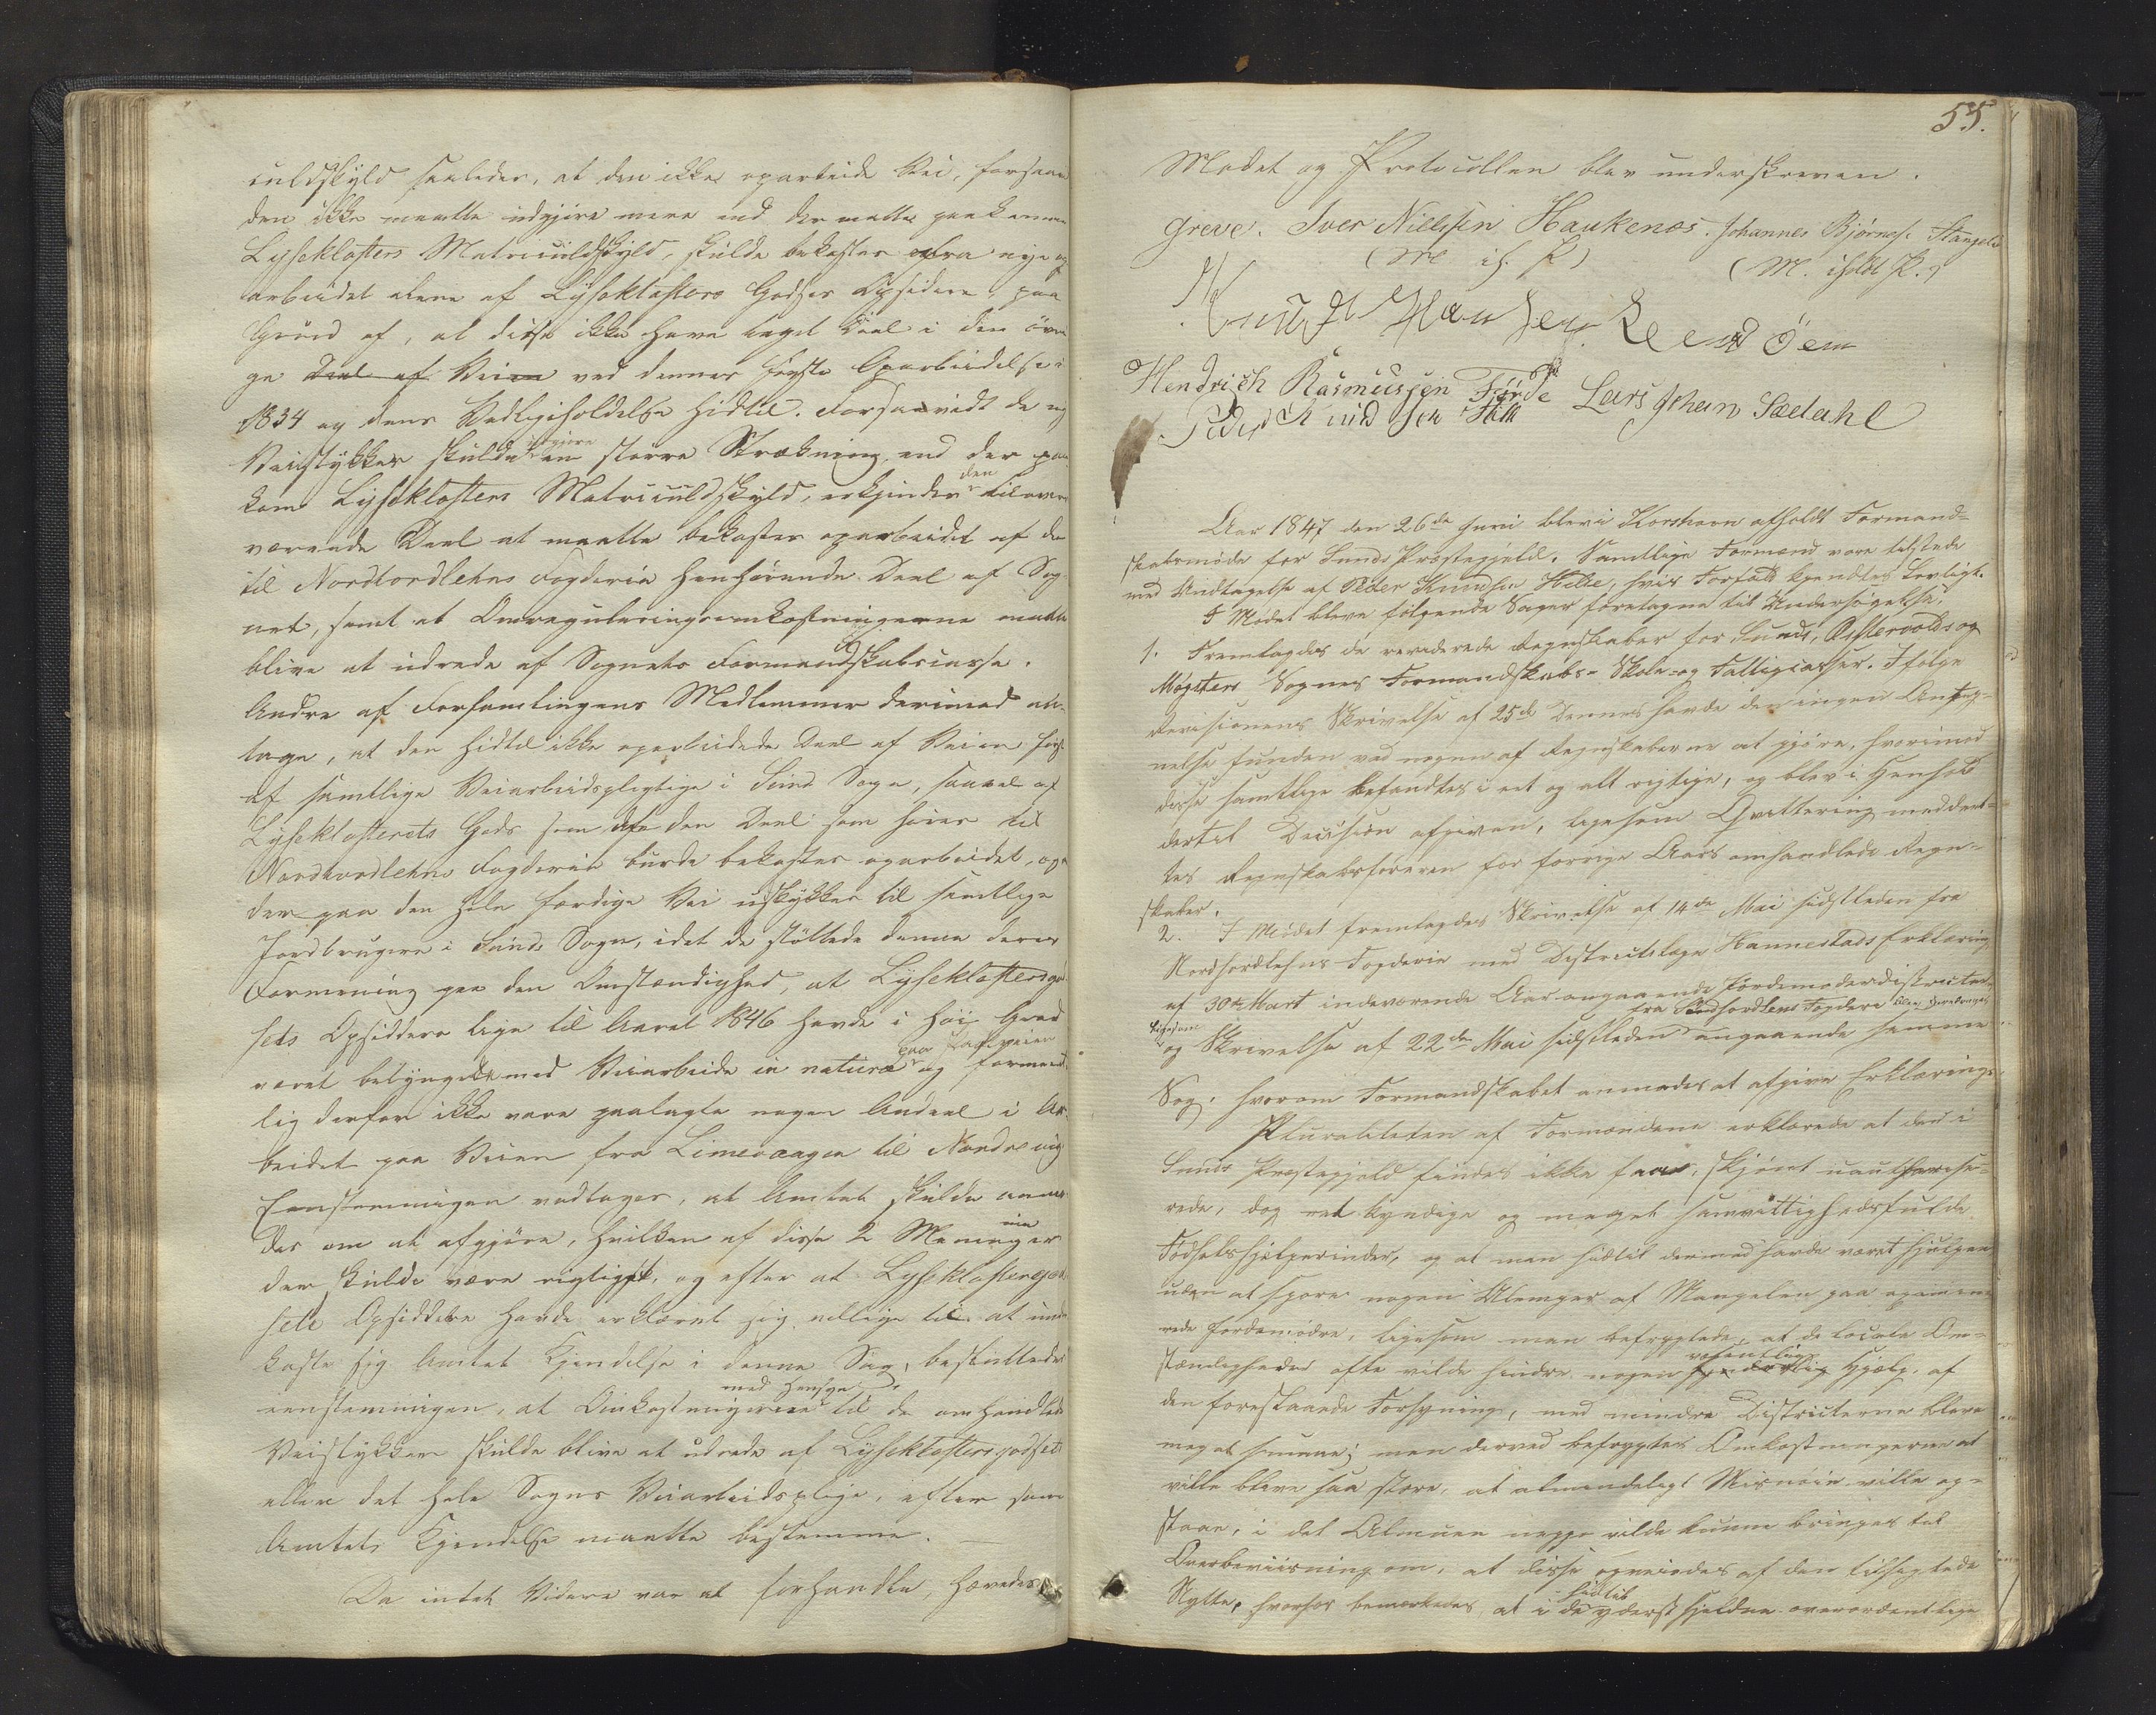 culdskyld saaledes, at den ikke oparbeide Vei, forsaavidt
den ikke maatte udgjøre mere end der matte paakomme
Lyseklosters Matriculdskyld, skulde bekostes fra nye op
arbeidet alene af Lyseklosters Godses Opsidere, paa
Grund af, at disse ikke have taget Deel i den øvri
ge Deel af Veien ved dennes første Oparbeidelse i
1834 og dens Vedligeholdelse hidtil. Forsaavidt de nye
Veistykker skulde udgjøre en større Strækning, end der paa
kom Lyseklosters Matriculdskyld, erkjendes den tilover
værende Deel at maatte bekostes oparbeidet af den
til Nordhordlehns Fogderie henhørende Deel af Sog
net, samt at Omreguleringsomkostningerne maatte
blive at udrede af Sognets Formandskabscasse.
Andre af Forsamlingens Medlemmer derimod an-
toge, at den hidtil ikke oparbeidede Deel af Veien først
af samtlige Veiarbeidspligtige i Sunds Sogn, saavel af
Lyseklosterets Gods som af den Deel som hører til
Nordhordlehns Fogderie burde bekostes oparbeidet, og
der paa den hele færdige Vei udstykkes til samtlige
Jordbrugere i Sunds Sogn, idet de støttede denne deres
Formening paa den Omstændighed, at Lyseklostersgod
sets Opsiddere lige til Aaret 1846 havde i høi Grad
været betyngede med Veiarbeide in natura paa og formeent
lig derfor ikke vare paalagte nogen Andeel i Ar
beidet paa Veien fra Limevaagen til Nordre
Eenstemmigen vedtages, at Amtet skulde anmo
des om at afgjøre, hvilken af disse 2 Meninger
der skulde være rigtigst, og efter at Lyseklostersgod
sets Opsiddere havde erklæret sig villige til at under
kaste sig Amtets Kjendelse i denne Sag, besluttedes
eenstemmigen, at Omkostningerne med Hensyn til de omhandlede
Veistykker skulde blive at udrede af Lyseklostersgodset
eller det hele Sogns Veiarbeidspligtige, efter som
Amtets Kjendelse maatte bestemme.
Da intet Videre var at forhandle, hævedes
55.
Mødet og Protocollen blev underskreven.
Greve. Iver Nielssen Haukenæs. Johannes Bjørnes. Stangeld
(M. ih. P.) (M. iholdt P.)
Knud Hansen
Hendrich Rasmussen Førde Lars Johan Sædahl
Peder Knudsen Hille
Aar 1847 den 26de Juni blev i Korshavn afholdt Formand-
skabsmøde for Sunds Præstegjeld. Samtlige Formænd vare tilstede
med Undtagelse af Peder Knudsen Hille, hvis Forfald kjendtes lovligt.
I Mødet bleve følgende Sager foretagne til Undersøgelse.
1. Fremlagdes de reviderede Regnskaber for Sunds, Østervolds og
Møgsters Sognes Formandskabs- Skole- og Fattigcasser. Ifølge
Revisionens Skrivelse af 25de Dennes havde den ingen Anteg-
nelse funden ved nogen af Regnskaberne at gjøre, hvorimod
disse samtlige befandtes i eet og alt rigtige, og blev i Henhold
dertil Decision afgiven, ligesom Qvittering meddeel-
tes Regnskabsføreren for forrige Aars omhandlede Regn-
skaber.
2. I Mødet fremlagdes Skrivelse af 14de Mai sidstleden fra
Nordhordlehns Fogderie med Districtslæge Hannestads Erklæring
af 30te Mart indeværende Aar angaaende Jordemoderdistricter
ligesom og Skrivelse af 22de Mai sidstleden fra Søndhordlens Fogderi angaaende samme
Sag, hvorom Formandskabet anmodes at afgive Erklæring.
Pluraliteten af Formændene erklærede at der i
Sunds Præstegjeld findes ikke faae, skjønt uauthorise-
rede, dog ret kyndige og meget samvittighedsfulde
Fødselshjelperinder, og at man hidtil dermed havde været hjulpen
uden at spore nogen Ulemper af Mangelen paa examine
rede Jordemødre, ligesom man befrygtede, at de locale Om-
stændigheder ofte vilde hindre nogen væsentlig Hjælp af
den foreslaaede Forsyning, med mindre Districterne bleve
meget smaae; men derved befrygtes Omkostningerne at
ville blive saa store, at almindeligt Misnøie ville op-
staae, i det Almuen neppe vilde kunne bringes til
Overbeviisning om, at disse opveiedes af den tilsigtede
Nytte, hvorhos bemærkedes at i de hidtil yderst sjeldne overordentlige